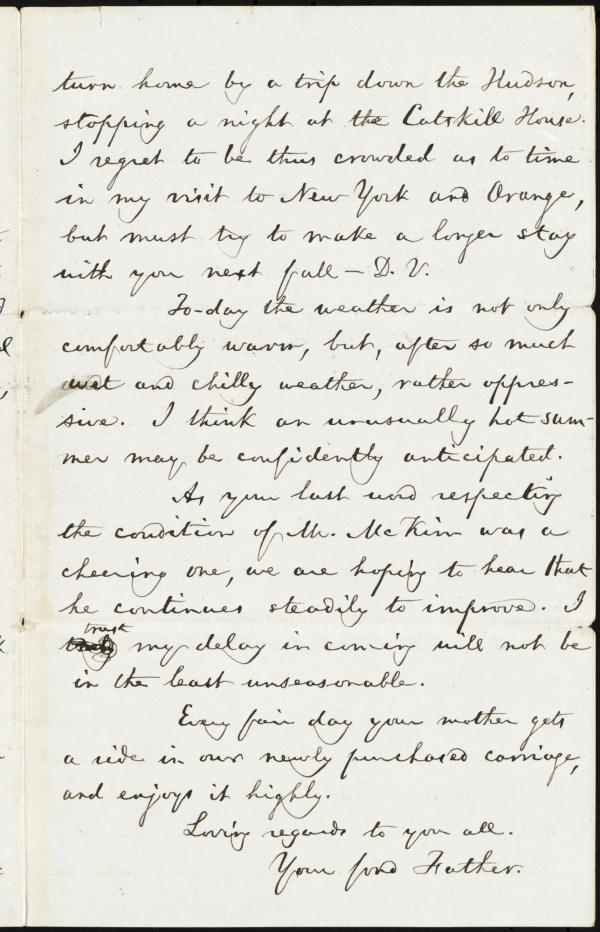 turn home by a trip down the Hudson,
stopping a night at the Catskill House.
I regret to be thus crowded as to time
in my visit to New York and Orange,
but must try to make a longer stay
with you next fall — D. V.
To-day the weather is not only
comfortably warm, but, after so much
wet and chilly weather, rather oppres-
sive. I think an unusually hot sum-
mer may be confidently anticipated.
As your last word respecting
the condition of Mr. McKim was a
cheering one, we are hoping to hear that
he continues steadily to improve. I
trust
my delay in coming will not be
in the least unseasonable.
Every fair day your mother gets
a ride in our newly purchased carriage,
and enjoys it highly.
Loving regards to you all.
Your fond Father.